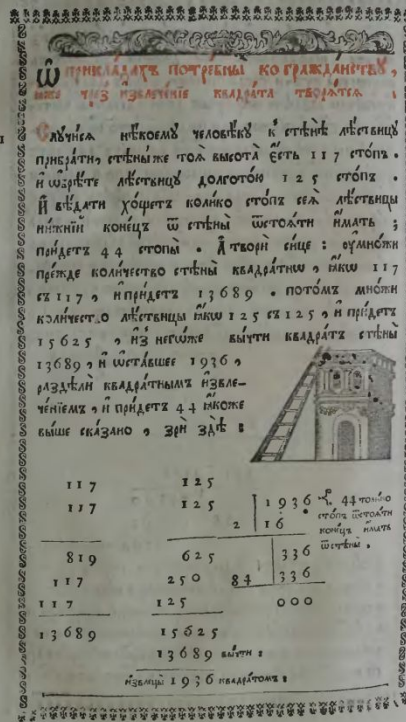 Ѿ прикла́дахъ потре́бны́ ко гражда́нству,
ꙗ҆̀же чрез̾ и҆звлече́нїе квадра́та творѧ́тсѧ .
Случи́сѧ нѣ́коемꙋ человѣ́кꙋ к̾ стѣнѣ̀ лѣ́ствицꙋ
прибра́ти, стѣны́ же тоѧ̀ высота̀ є҆́сть 117 стѡ́пъ .
и҆ ѡ҆брѣ́те лѣ́ствицꙋ долгото́ю 125 стѡ́пъ .
И҆ вѣ́дати хо́щетъ коли́ко стѡ́пъ сеѧ̀ лѣ́ствицы
ни́жнїй коне́цъ ѿ стѣны̀ ѿстоѧ́ти и҆́мать ;
прїи́детъ 44 стопы̀ . А҆ творѝ си́це : ᲂу҆мно́жи
пре́жде коли́чество стѣны̀ квадра́тнѡ , ꙗ҆́кѡ 117
съ 117 , и҆ прїи́детъ 13689 . пото́мъ мно́жи
коли́чество лѣ́ствицы ꙗ҆́кѡ 125 съ 125 , и҆ прїи́детъ
15625 , и҆з̾ негѡ́же вы́чти квадра́тъ стѣны̀
13689 , и҆ ѡ҆ста́вшее 1936 ,
раздѣлѝ квадра́тнымъ и҆звле-
че́нїемъ , и҆ прїи́детъ 44 ꙗ҆́коже
вы́ше ска́зано , зрѝ здѣ̀ :
117 125
117 125 1936 44 то́лико
2 16 стѡ́пъ ѿстоѧ́ти
коне́цъ и҆́мать
819 625 336 ѿ стѣны̀ .
117 250 84 336
117 125 000
13689 15625
13689 вы́чти :
и҆звлецы̀ 1936 квадра́томъ :